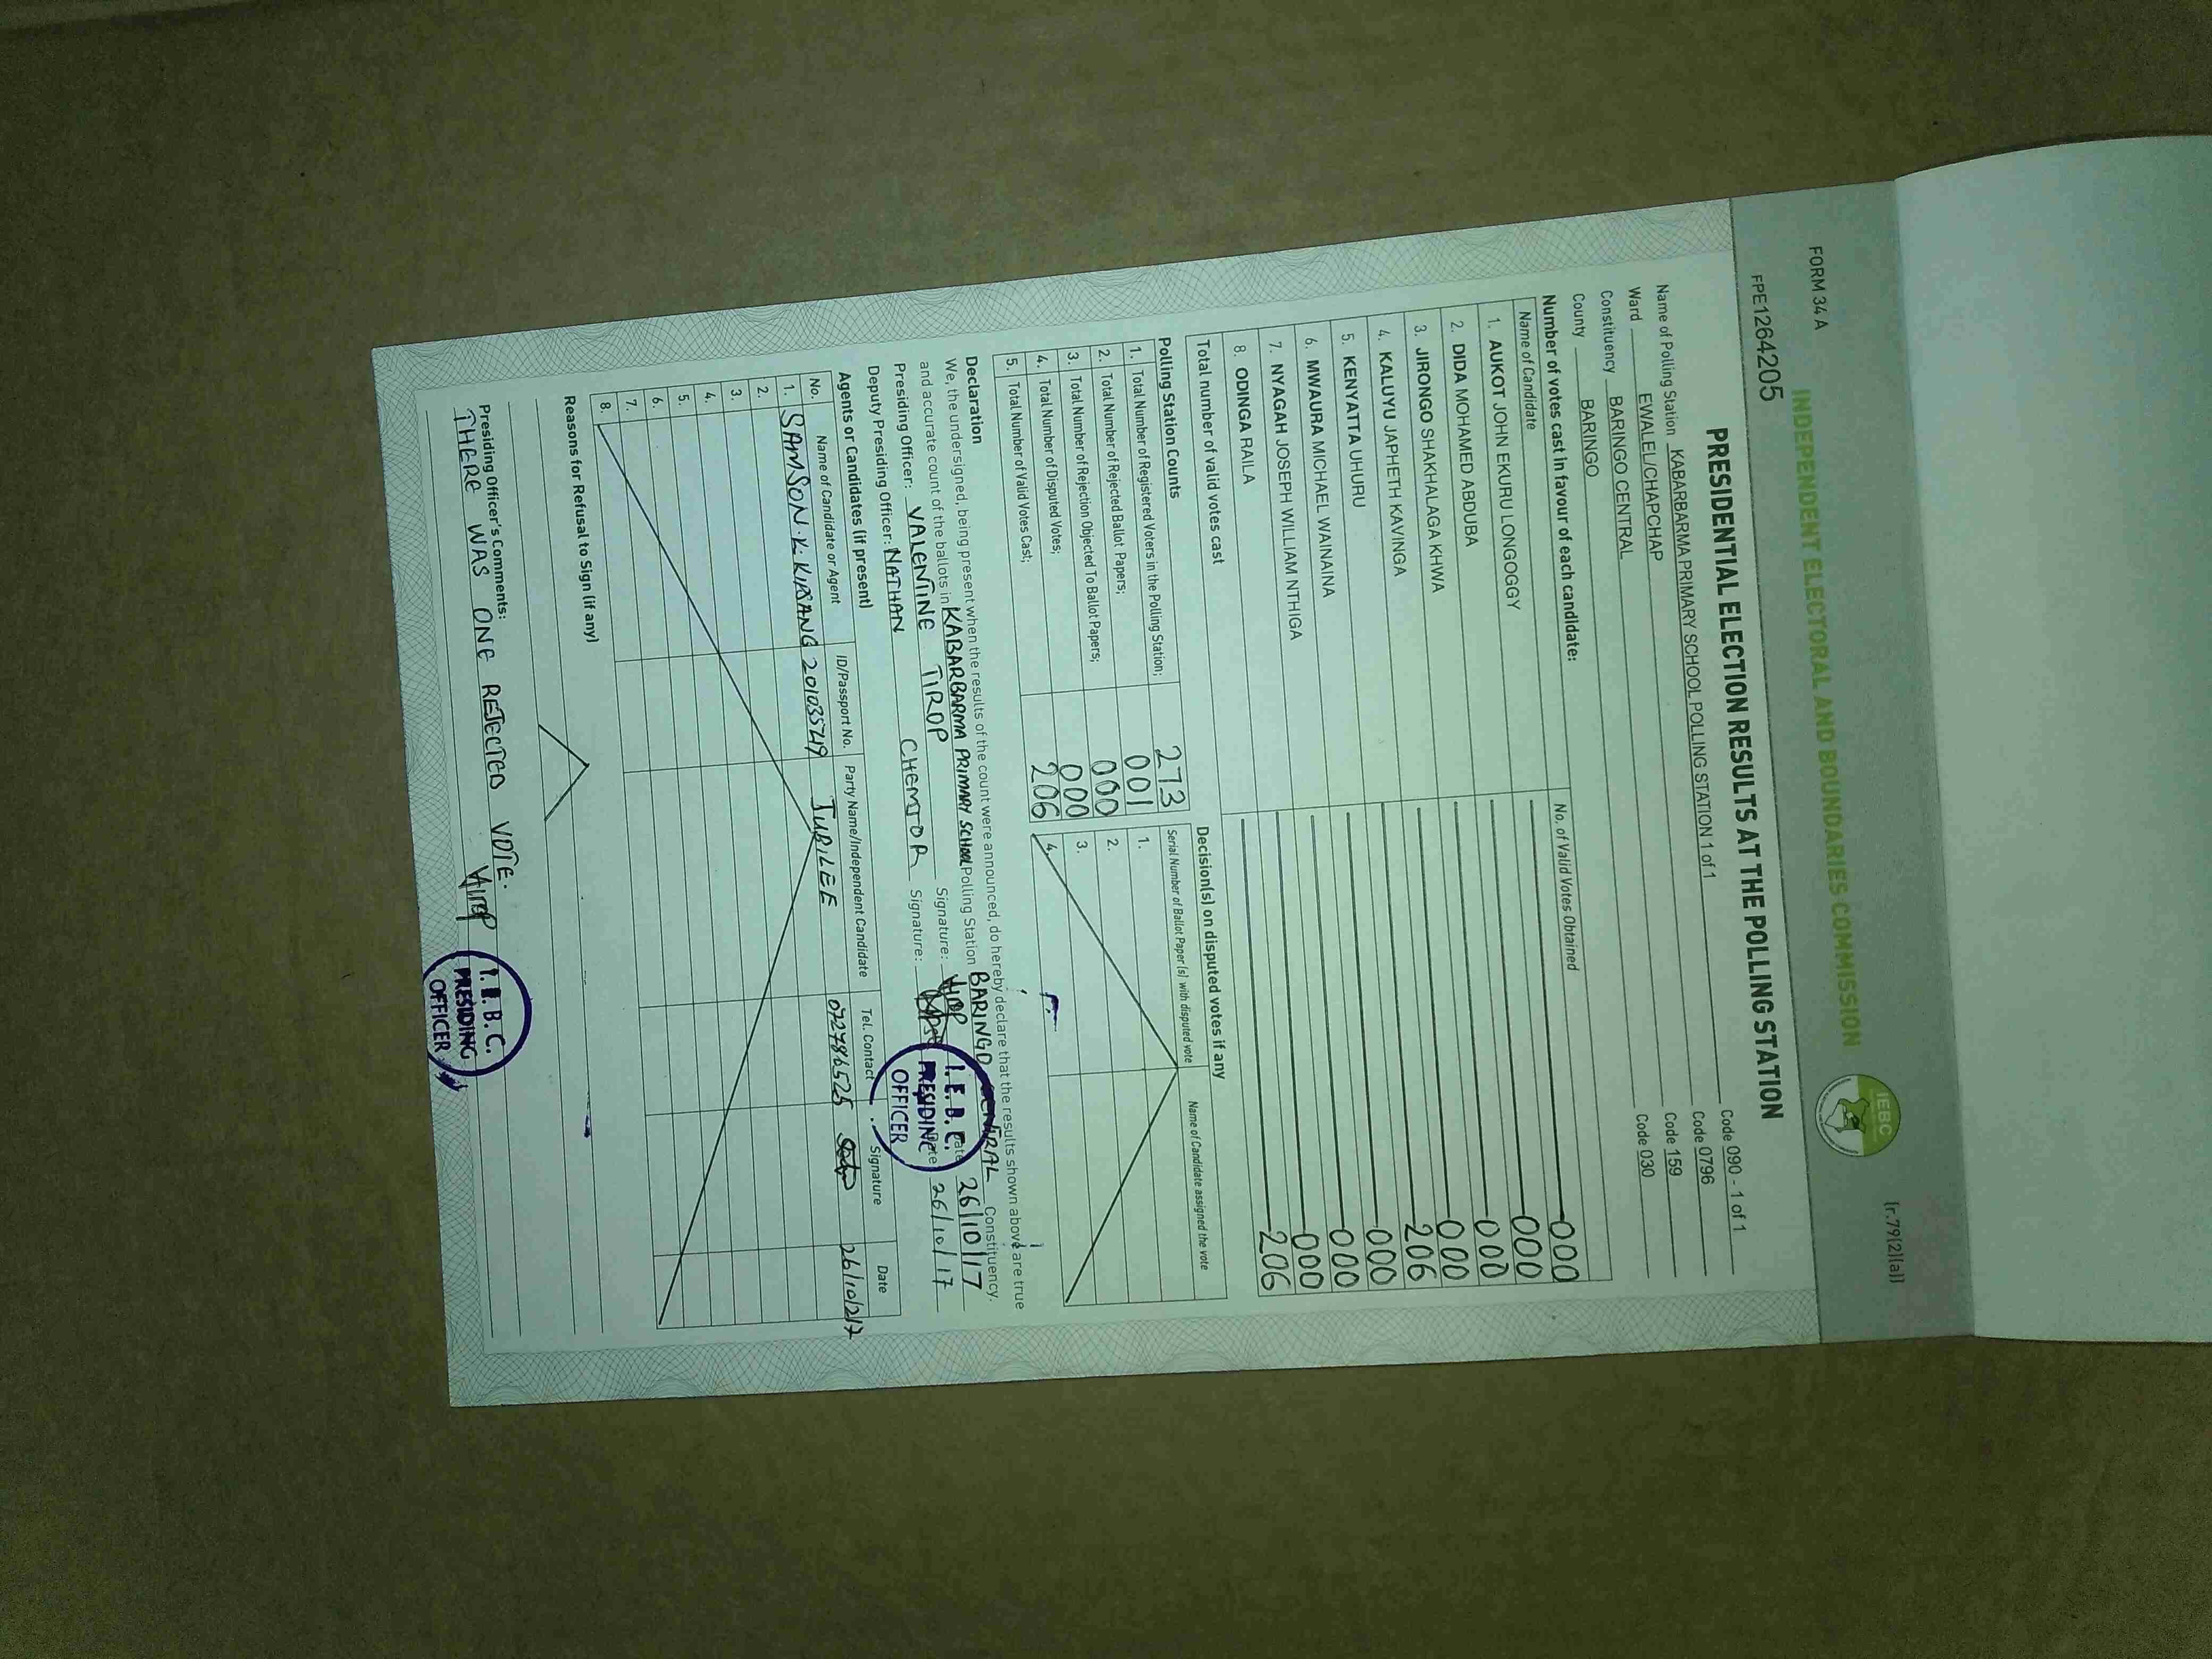 FORM 34 A
(r.79(2)(a))
INDEPENDENT ELECTORAL AND BOUNDARIES COMMISSION
IEBC
FPE1264205
PRESIDENTIAL ELECTION RESULTS AT THE POLLING STATION
Name of Polling Station KABARBARMA PRIMARY SCHOOL POLLING STATION 1 of 1 Code 090 - 1 of 1
Ward EWALEL/CHAPCHAP Code 0796
Constituency BARINGO CENTRAL Code 159
County BARINGO Code 030
Number of votes cast in favour of each candidate:
Name of Candidate No. of Valid Votes Obtained
1. AUKOT JOHN EKURU LONGOGGY 000
2. DIDA MOHAMED ABDUBA 000
3. JIRONGO SHAKHALAGA KHWA 000
4. KALUYU JAPHETH KAVINGA 000
5. KENYATTA UHURU 206
6. MWAURA MICHAEL WAINAINA 000
7. NYAGAH JOSEPH WILLIAM NTHIGA 000
8. ODINGA RAILA 000
Total number of valid votes cast 206
Polling Station Counts
1. Total Number of Registered Voters in the Polling Station; 273
2. Total Number of Rejected Ballot Papers; 001
3. Total Number of Rejection Objected To Ballot Papers; 000
4. Total Number of Disputed Votes; 000
5. Total Number of Valid Votes Cast; 206
Decision(s) on disputed votes if any
Serial Number of Ballot Paper (s) with disputed vote Name of Candidate assigned the vote
1.
2.
3.
4.
Declaration
We, the undersigned, being present when the results of the count were announced, do hereby declare that the results shown above are true
and accurate count of the ballots in KABARBARMA PRIMARY SCHOOL Polling Station BARINGO CENTRAL Constituency.
Presiding Officer: VALENTINE TIROP Signature: Date 26/10/17
Deputy Presiding Officer: NATHAN CHEMJOR Signature: Date 26/10/17
I.E.B.C.
PRESIDING
OFFICER
Agents or Candidates (if present)
No. Name of Candidate or Agent ID/Passport No. Party Name/Independent Candidate Tel. Contact Signature Date
1. SAMSON.K. KIBSANG 20103549 JUBILEE 072786525 26/10/217
2.
3.
4.
5.
6.
7.
8.
Reasons for Refusal to Sign (if any)
Presiding Officer's Comments:
THERE WAS ONE REJECTED VOTE.
I.E.B.C.
PRESIDING
OFFICER